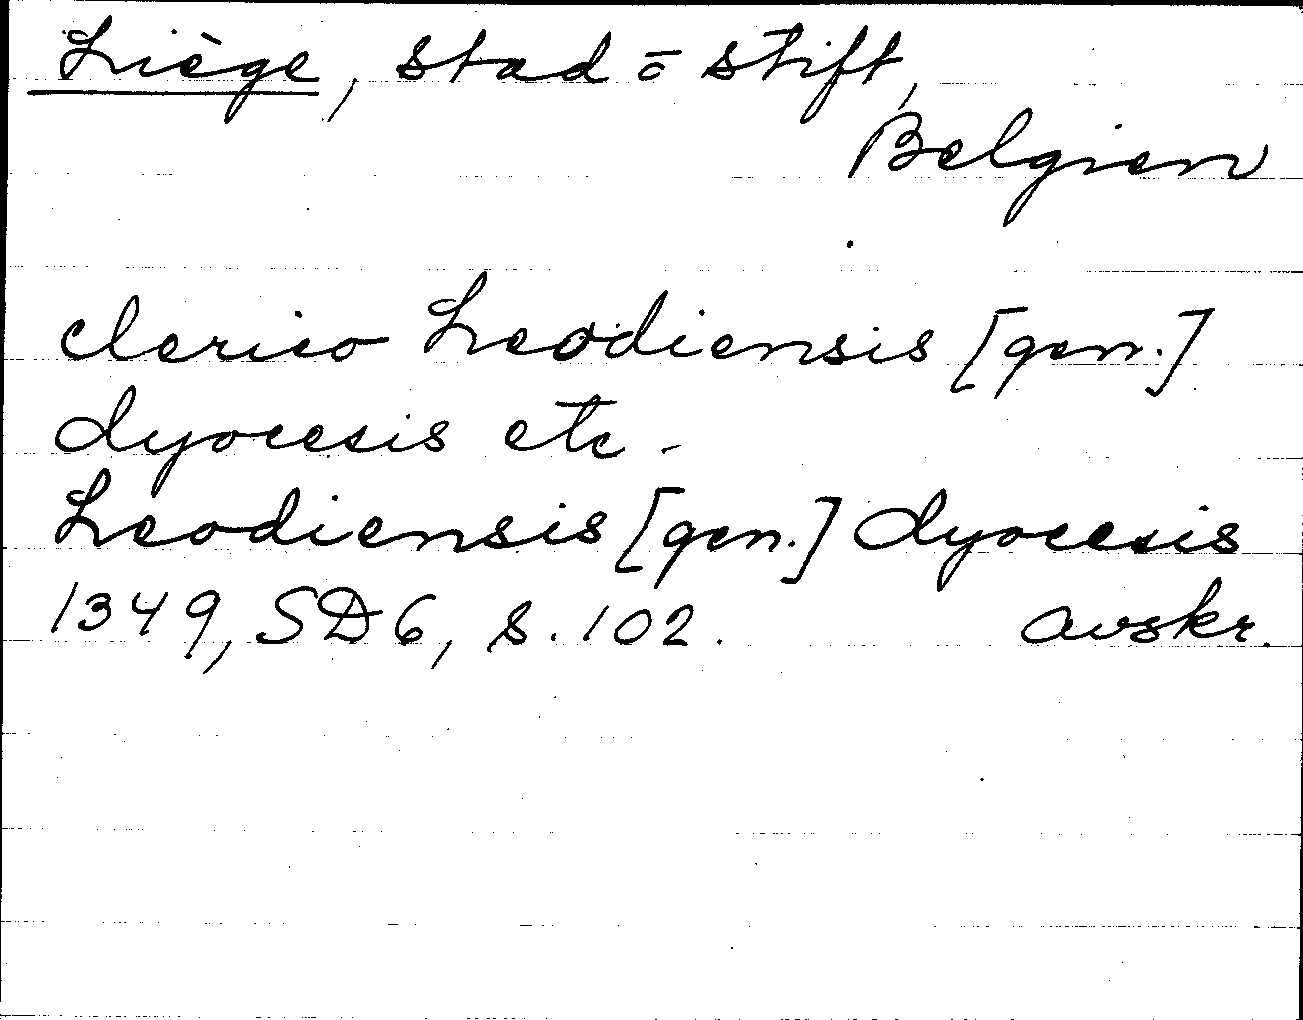 Liège, stad o stift,
Belgien
clerico Leodiensis [gen.]
dyocesis etc -
Leodiensis [gen.] dyocesis
1349, SD 6, s. 102. avskr.